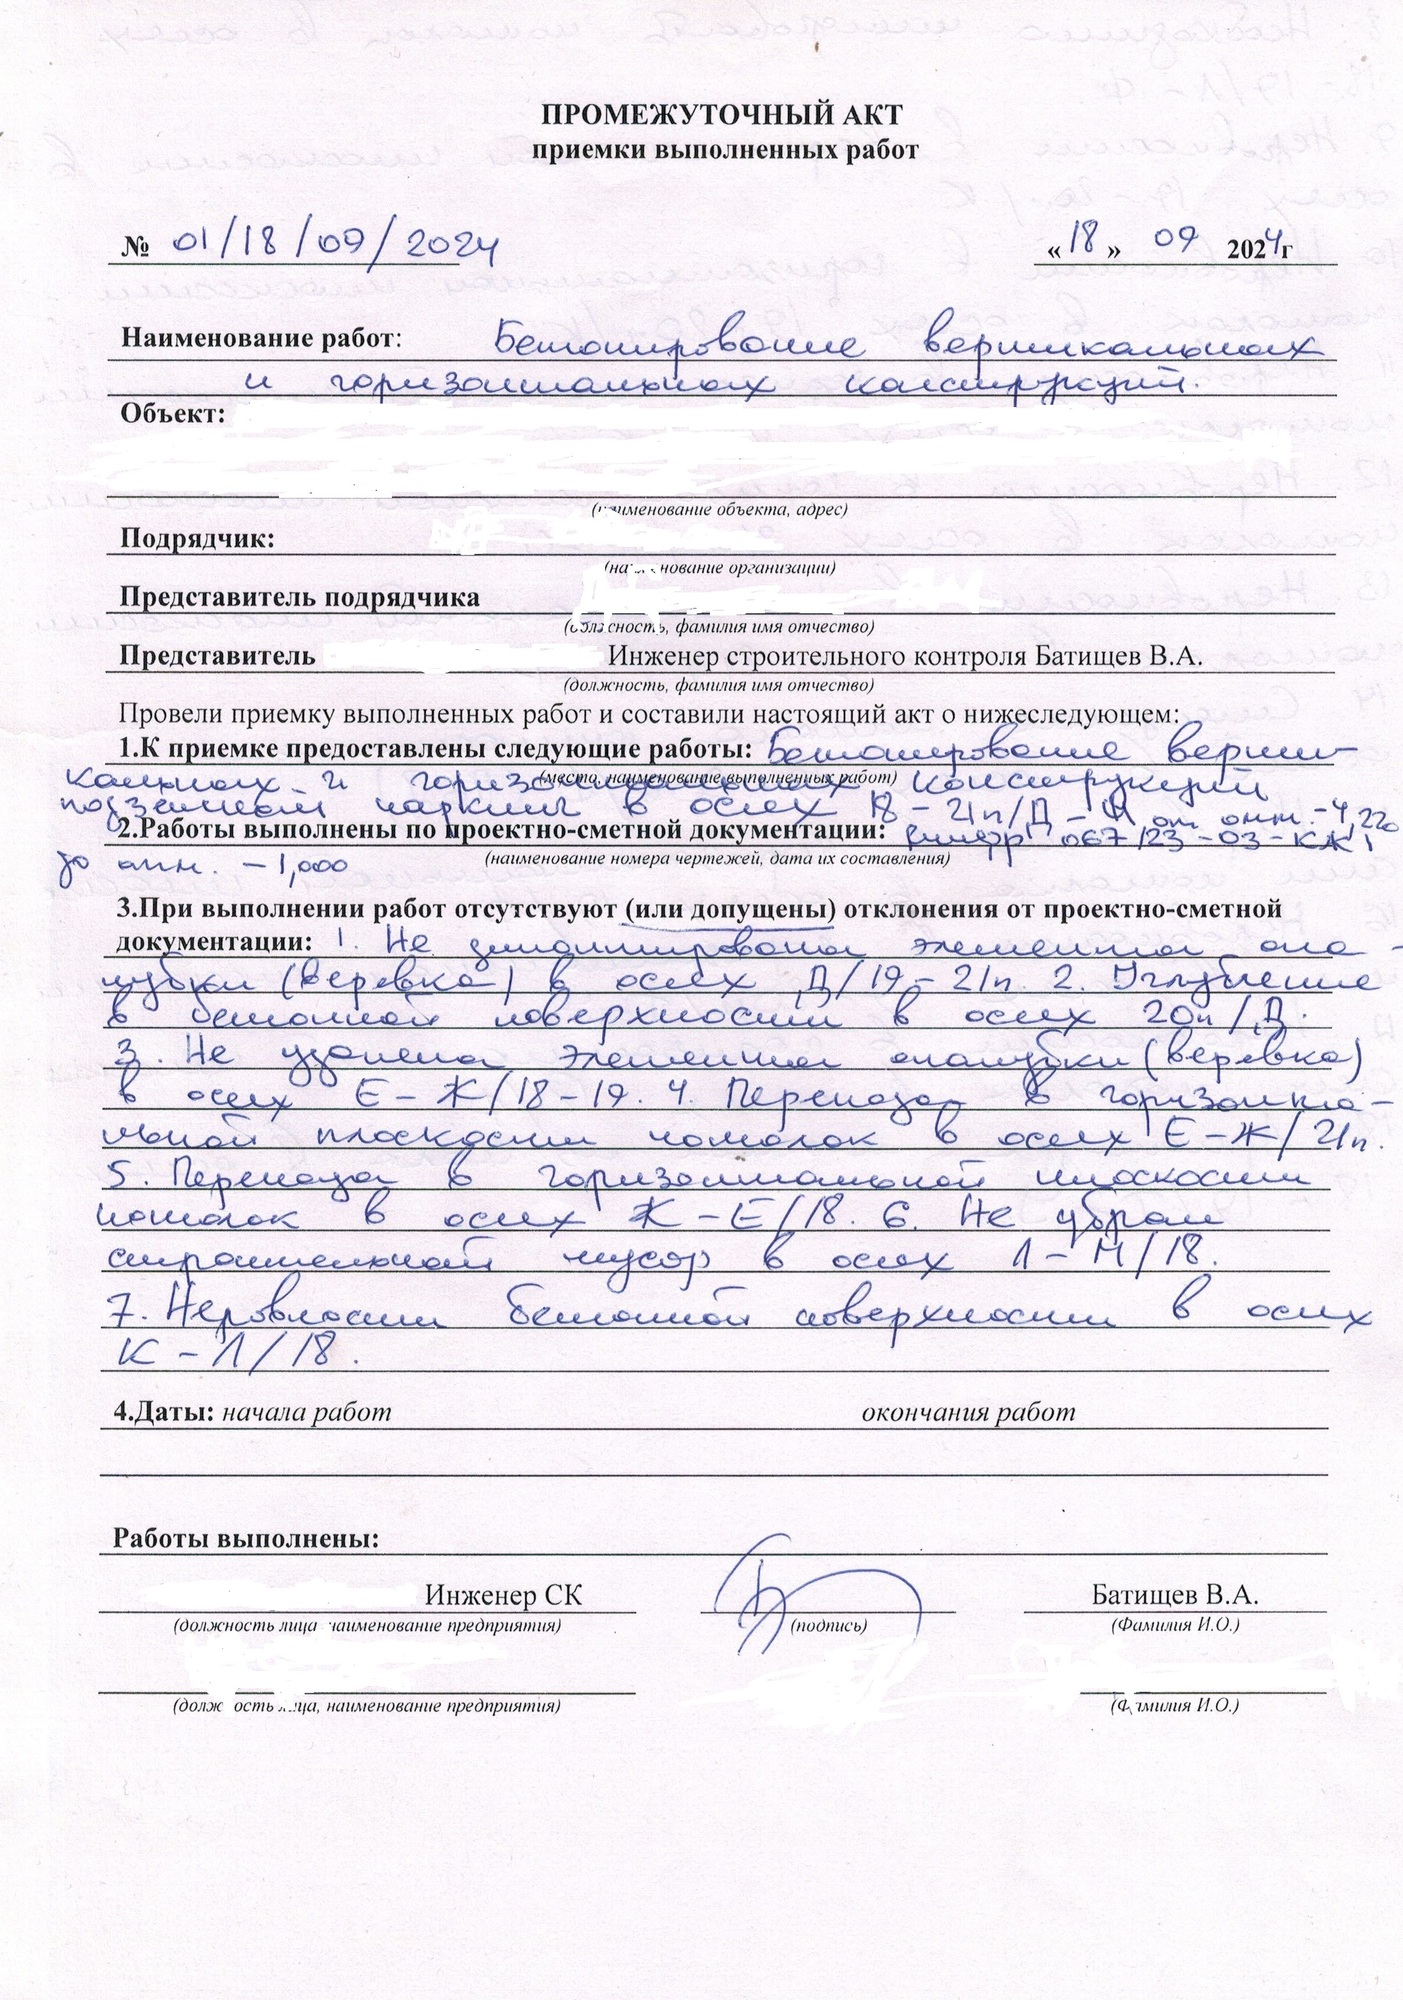 ПРОМЕЖУТОЧНЫЙ АКТ
приемки выполненных работ
№ 01/18/09/2024 «18» 09 2024г
Наименование работ: Бетонирование вертикальных
и горизонтальных конструкций.
Объект:
(наименование объекта, адрес)
Подрядчик:
(наименование организации)
Представитель подрядчика
(должность, фамилия имя отчество)
Представитель Инженер строительного контроля Батищев В.А.
(должность, фамилия имя отчество)
Провели приемку выполненных работ и составили настоящий акт о нижеследующем:
1.К приемке предоставлены следующие работы: Бетонирование верти-
(место, наименование выполненных работ)
кальных и горизонтальных конструкций
подземной паркинг в осях 18-21п/Д-И от отм. -4,220
2.Работы выполнены по проектно-сметной документации: шифр 067/23-03-КЖ1
до отм. -1,000
(наименование номера чертежей, дата их составления)
3.При выполнении работ отсутствуют (или допущены) отклонения от проектно-сметной
документации: 1. Не демонтированы элементы опа-
лубки (веревка) в осях Д/19-21п. 2. Углубление
в бетонной поверхности в осях 20п/Д.
3. Не удалена элементы опалубки (веревка)
в осях Е-Ж/18-19. 4. Перепады в горизонта-
льной плоскости потолок в осях Е-Ж/21п.
5. Перепады в горизонтальной плоскости
потолок в осях Ж-Е/18. 6. Не убран
строительный мусор в осях Л-М/18.
7. Неровности бетонной поверхности в осях
К-Л/18.
4.Даты: начала работ окончания работ
Работы выполнены:
Инженер СК Батищев В.А.
(должность лица наименование предприятия) (подпись) (Фамилия И.О.)
(должность лица, наименование предприятия) (Фамилия И.О.)